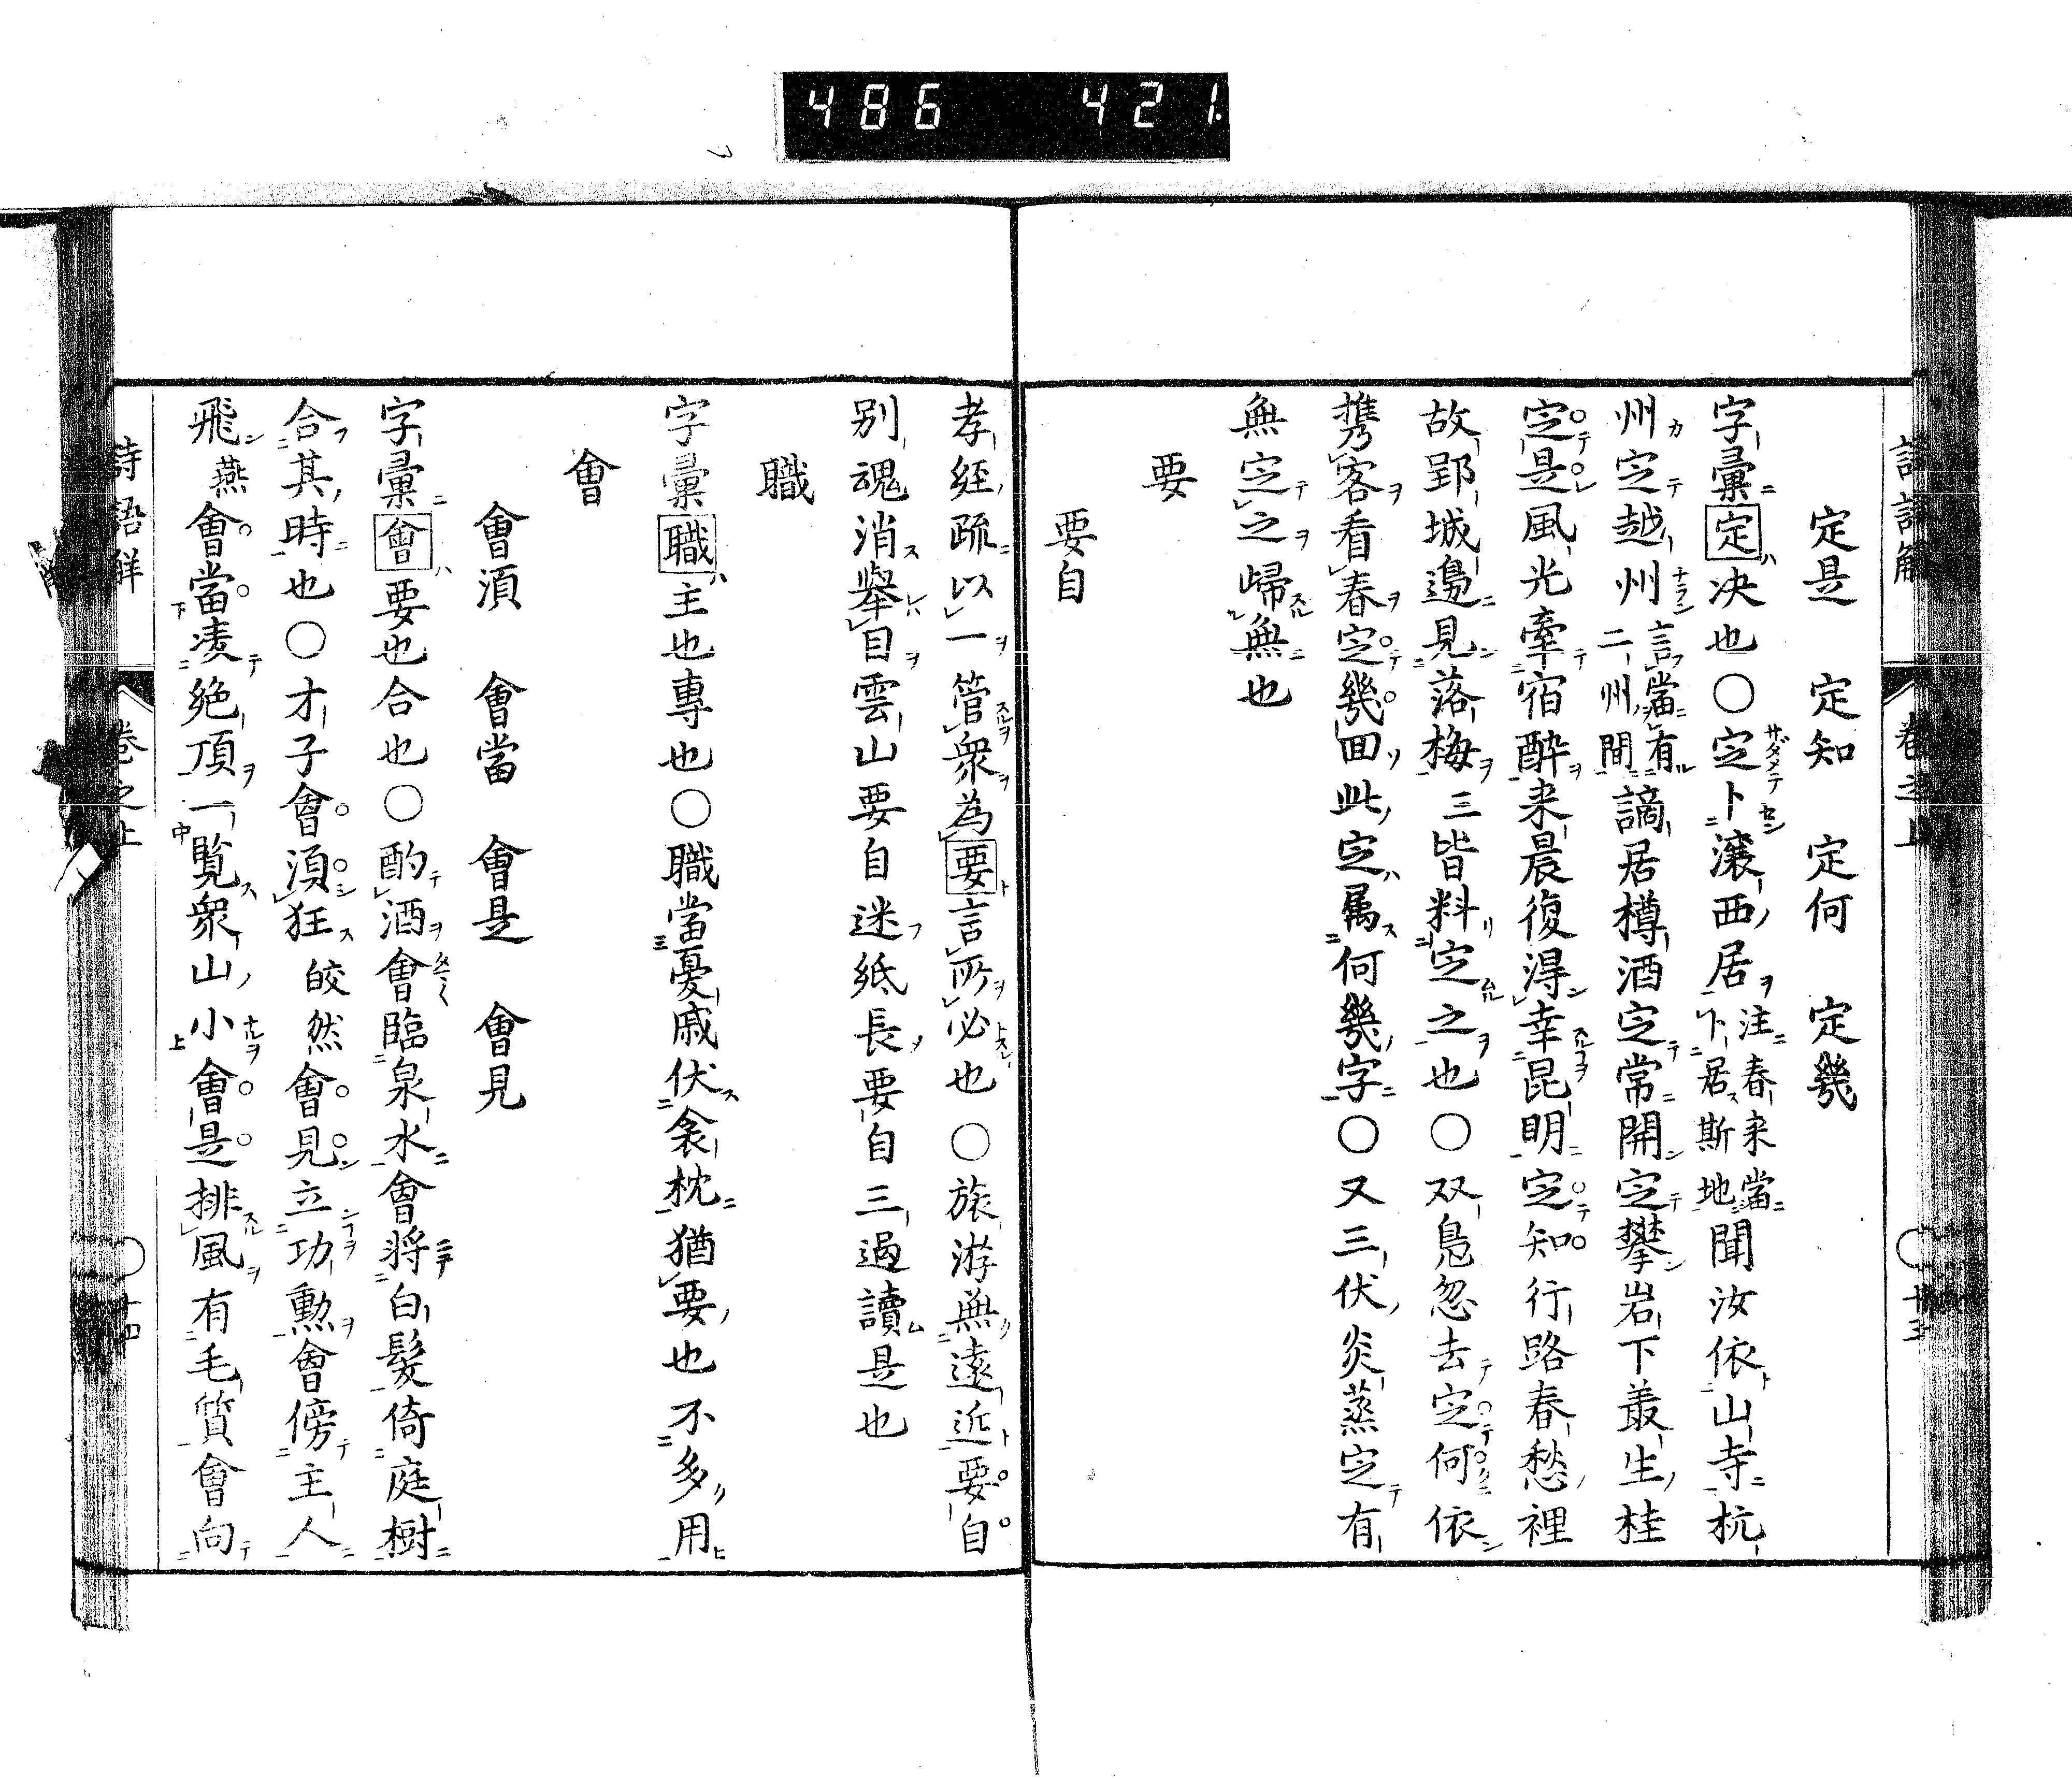 486 421
定是 定知 定何 定幾
字彙定决也〇定卜瀼西居注春来當卜居斯地聞汝依山寺杭
州定越州言當有二州間謫居樽酒定常開定攀岩下叢生桂
定是風光牽宿醉来晨復淂幸昆明定知行路春愁裡
故郢城邉見落梅三皆料定之也〇双鳬忽去定何依
携客看春定幾囬此定属何幾字〇又三伏炎蒸定有
無定之歸無也
要
要自
孝経疏以一管衆為要言所必也〇旅游無遠近要自
別魂消擧目雲山要自迷紙長要自三過讀是也
職
字彙職主也專也〇職當憂戚伏衾枕猶要也不多用
會
會湏 會當 會是 會見
字彙會要也合也〇酌酒會臨泉水會将白髮倚庭樹
合其時也〇才子會湏狂皎然會見立功勲會傍主人
飛燕會當凌絶頂一覧衆山小會是排風有毛質會向
詩語解 卷之上 十四